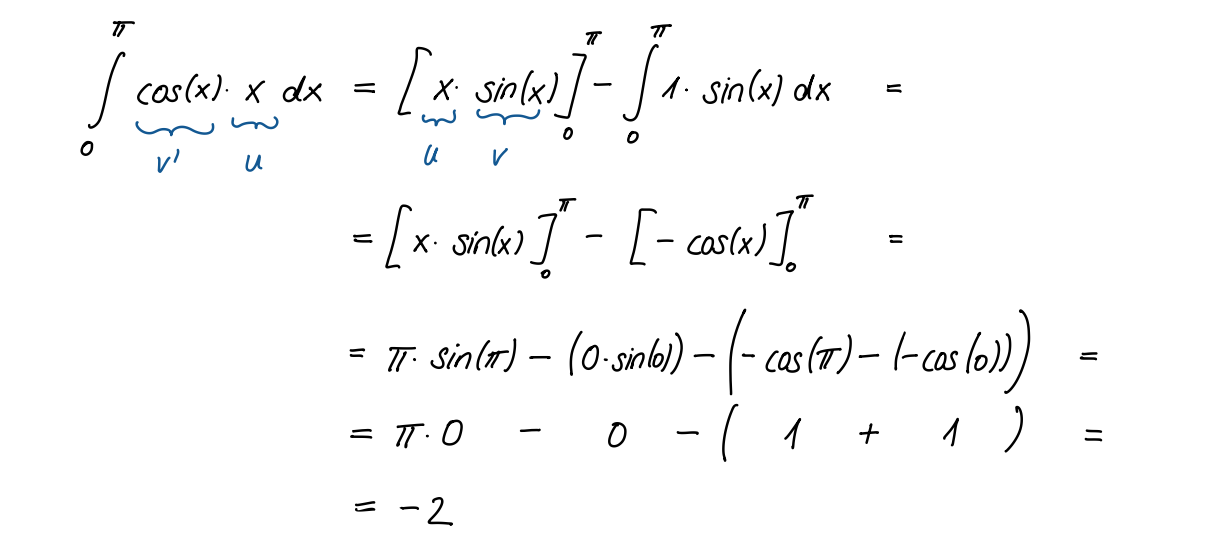 ∫₀^π cos(x)· x dx = [x· sin(x)]₀^π − ∫₀^π 1· sin(x) dx =
v' u u v
= [x· sin(x)]₀^π − [− cos(x)]₀^π =
= π· sin(π) − (0·sin(0)) − (− cos(π) − (−cos(0))) =
= π·0 − 0 − ( 1 + 1 ) =
= −2